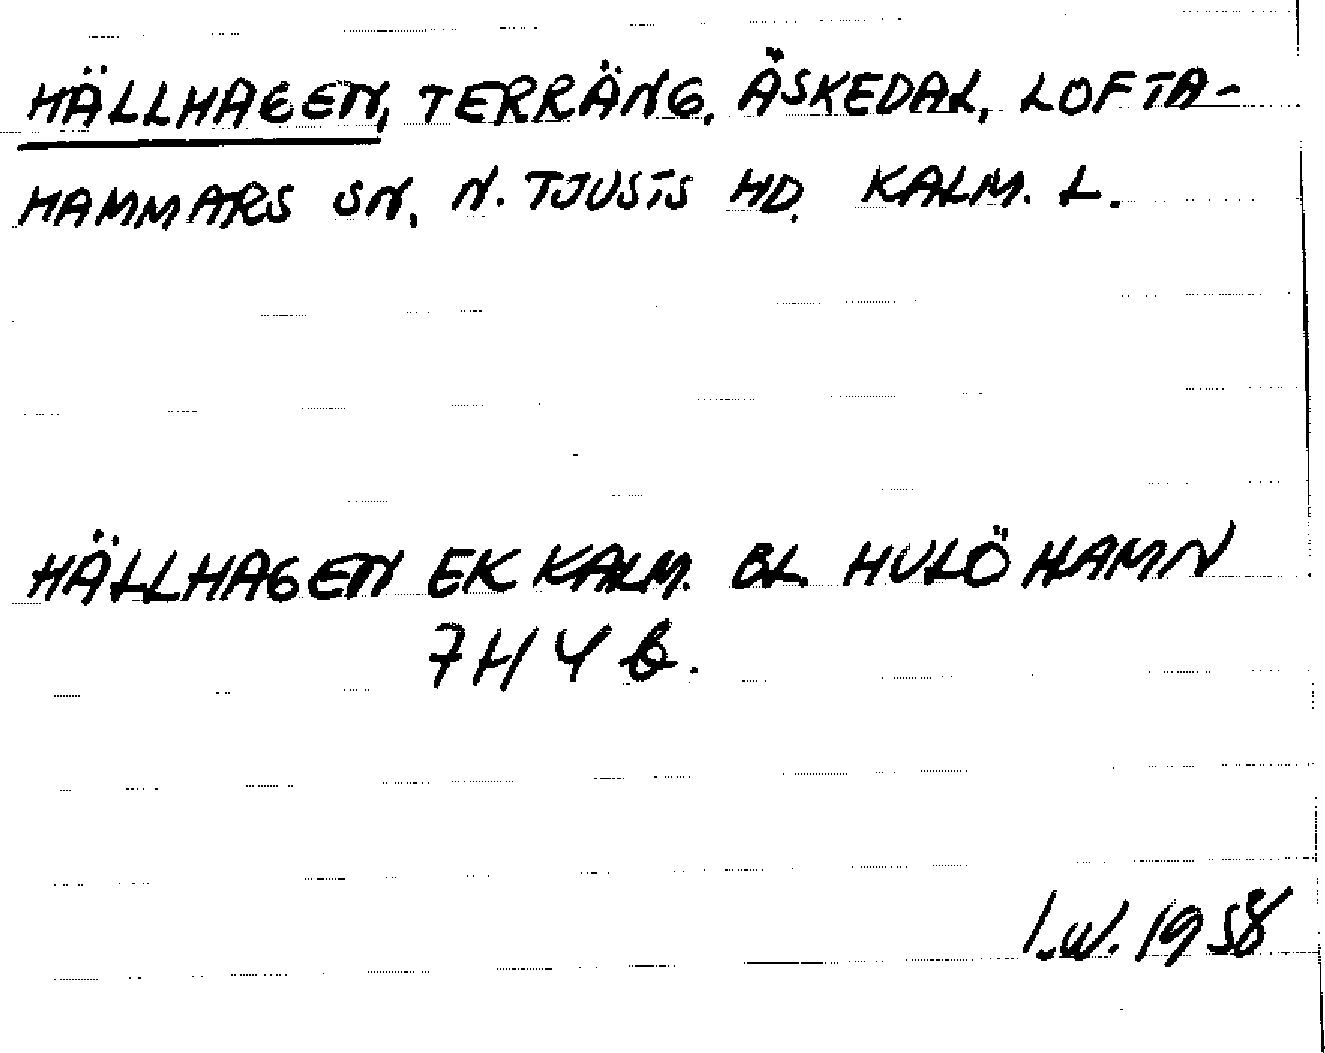 HÄLLHAGEN, TERRÄNG. ÅSKEDAL, LOFTA-
HAMMARS SN. N. TJUSTS HD. KALM. L.
HÄLLHAGEN EK KALM. BL HULÖHAMN
7H4b.
I.W. 1958